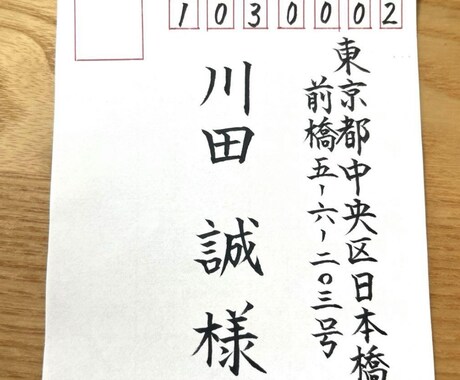 1030002
東京都中央区日本橋
前橋五-六-二〇三号
川田 誠 様